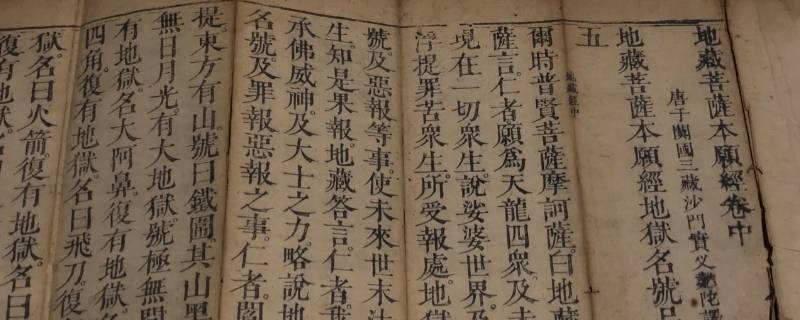 地藏菩薩本願經卷中
唐于闐國三藏沙門實叉難陀譯
地藏菩薩本願經地獄名號品
五
地藏經中
爾時普賢菩薩摩訶薩。白地藏
薩言。仁者願爲天龍四衆。及未
現在一切衆生。說娑婆世界。及
浮提罪苦衆生。所受報處。地獄
號。及惡報等事。使未來世末法
生。知是果報。地藏答言。仁者我
承佛威神。及大士之力。略說地
名號。及罪報惡報之事。仁者。閻
提。東方有山。號曰鐵圍。其山黑
無日月光。有大地獄。號極無間
有地獄。名大阿鼻。復有地獄。
四角。復有地獄。名曰飛刀。復
獄。名曰火箭。復有地獄。名
復有地獄。名曰